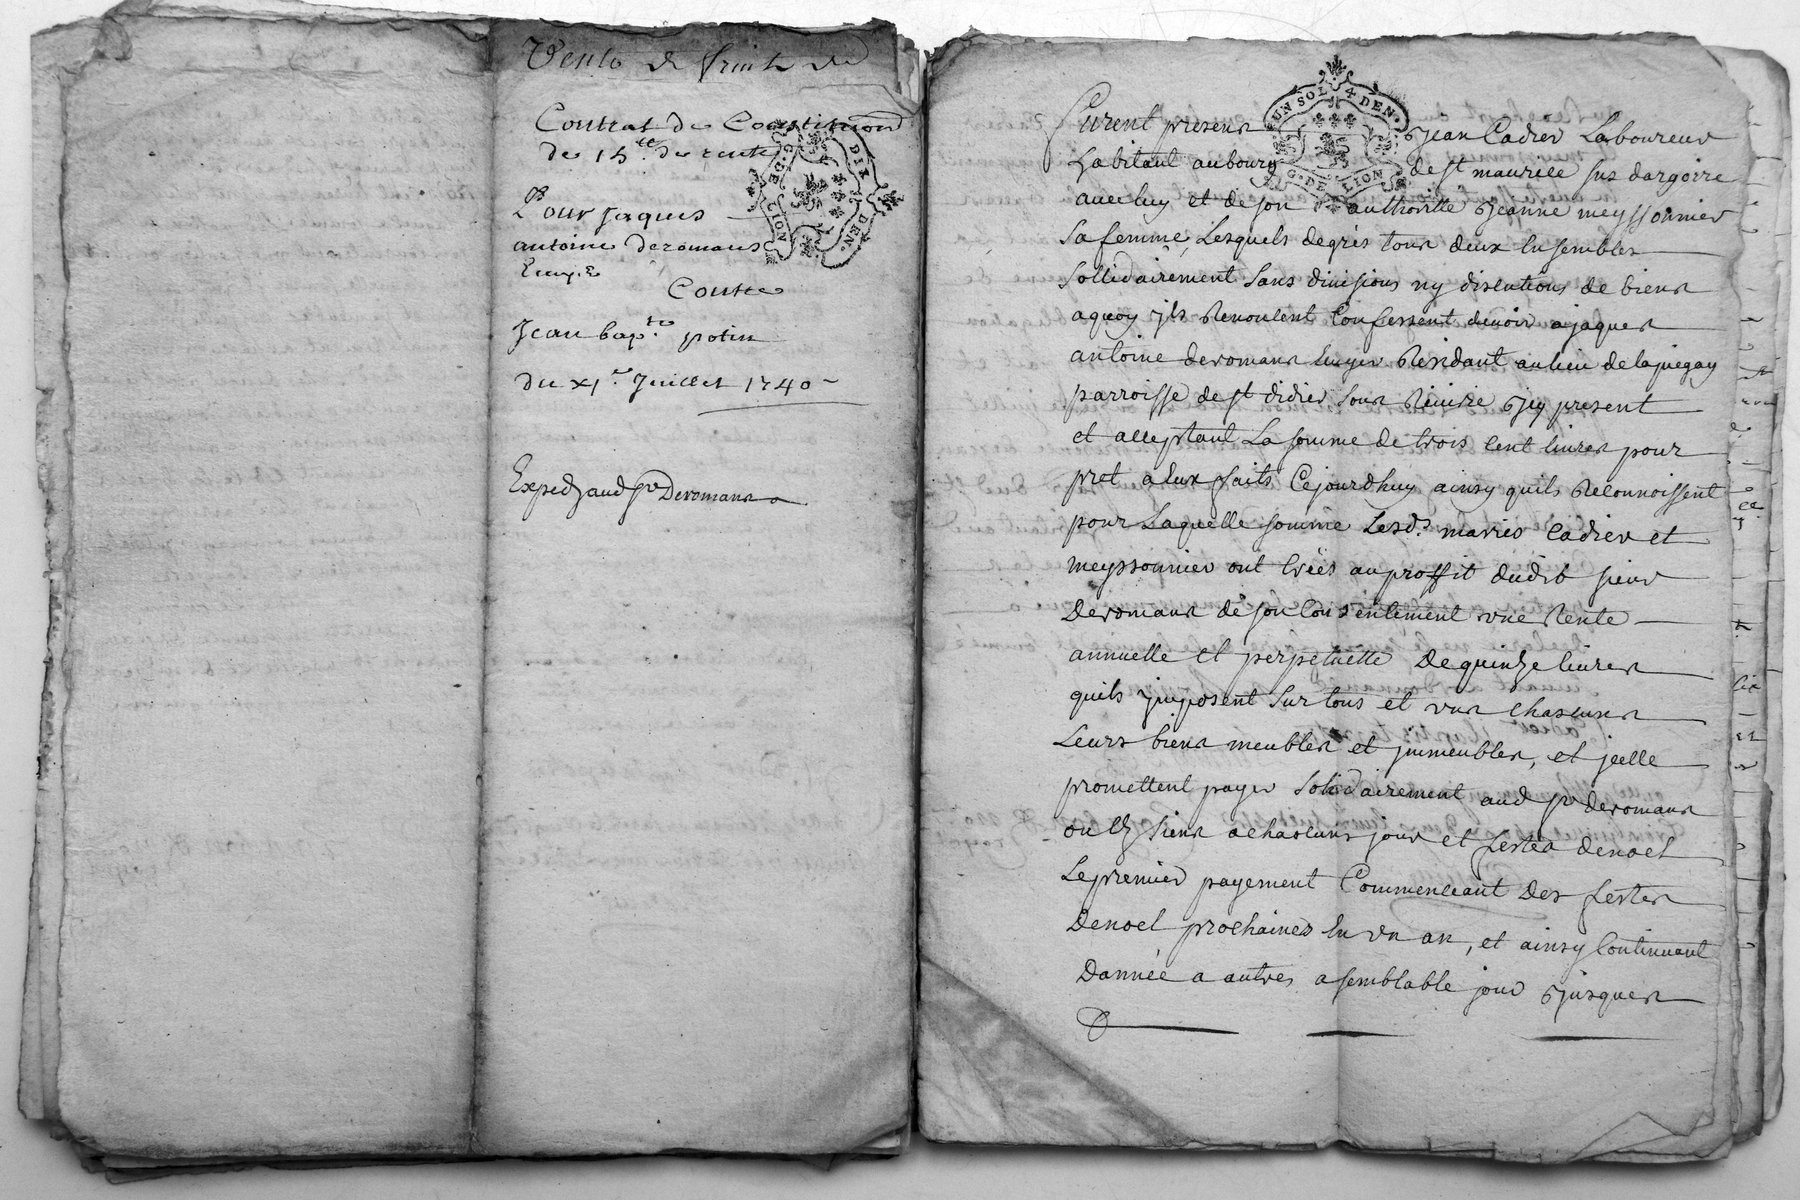 Vente de fruit de
Contrat de Constitution
de 15.tt de rente
G.DE LION DIX DEN.
Pour Jaques
antoine deromans
Ecuy.r
Contre
Jean bap.te potin
du XI.e Juillet 1740
Exped aud sr Deromans
UN SOL 4 DEN.
G. DE LION
Furent presens Jean Cadier Laboureur
habitant au bourg de st maurice sus dargoire
avec luy et de son authorité Jeanne meyssonnier
sa femme, Lesquels de gres tous deux Ensembles
Sollidairement Sans divisions ny discutions de biens
aquoy jls Renoncent Confessent devoir a jaques
antoine deromans Ecuyer Residant au lieu de lapiegay
parroisse de st didier sous Riviere Jcy present
et acceptant La somme de trois cent livres pour
pret a Eux faits Cejourdhuy ainsy quils Reconnoissent
pour Laquelle somme Lesd.s mariés Cadier et
meyssonnier ont Créés au proffit dudit sieur
Deromans de son Consentement une Rente
annuelle et perpetuelle De quinze livres
quils jmposent Sur tous et uns chascuns
Leurs biens meubles et jmmeubles, et jcelle
promettent payer Solidairement aud sr deromans
ou Es siens a chascuns jour et festes denoel
Le premier payement Commenceant Des festes
Denoel prochaines En un an, et ainsy Continuant
Dannée a autres a semblable jour Jusques